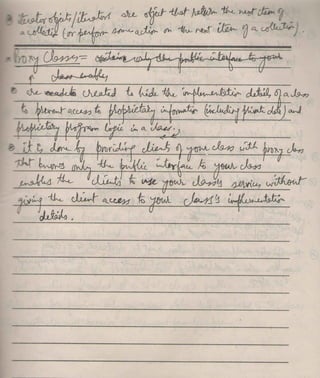 Iterator objects/iterators are object that return the next item of
a collection (or perform some action on the next item of a collection).
Proxy Classes =
class enables
are created to hide the implementation details of a class
to prevent access to proprietary information (including private data) and
proprietary program logic in a class.
it is done by providing clients of your class with proxy class
that knows only the public interface to your class
enables the clients to use your class's services without
giving the client access to your class's implementation
details.